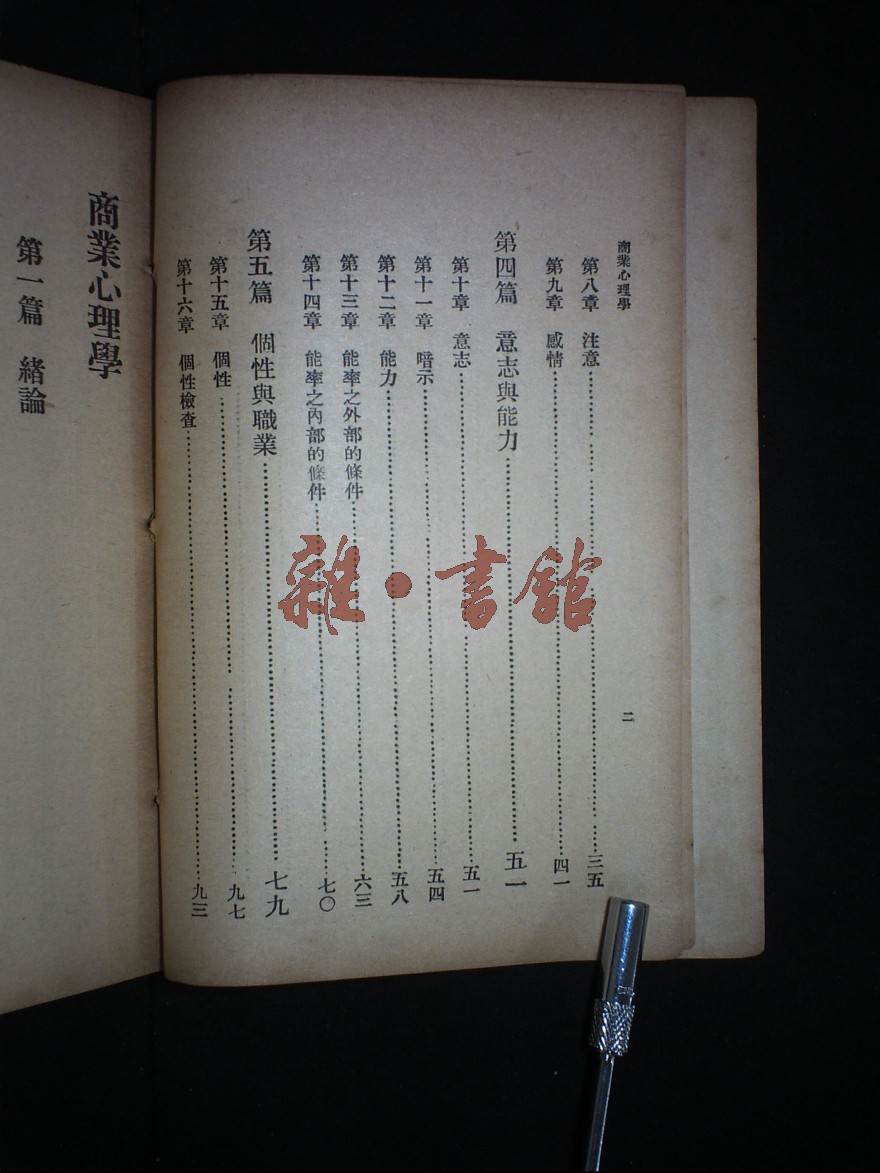 商業心理學
二
第八章 注意 三五
第九章 感情 四一
第四篇 意志與能力 五一
第十章 意志 五一
第十一章 暗示 五四
第十二章 能力 五八
第十三章 能率之外部的條件 六三
第十四章 能率之內部的條件 七〇
第五篇 個性與職業 七九
第十五章 個性 九七
第十六章 個性檢查 九三
商業心理學
第一篇 緒論
雜·書館